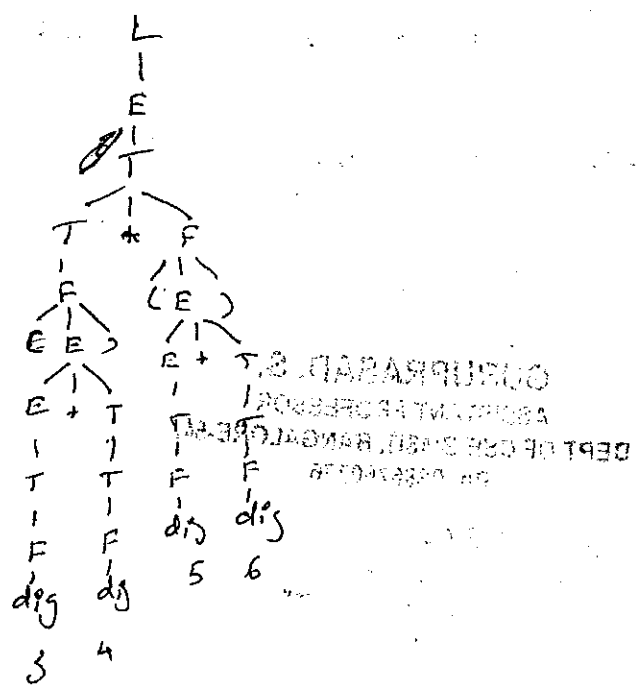 L
E
T
T * F
F ( E )
E E ) E + T
E + T T T
T T F F
F F dig dig
dig dig 5 6
3 4
GURUPRASAD. S.
ASSISTANT PROFESSOR
DEPT OF CSE BANGALORE